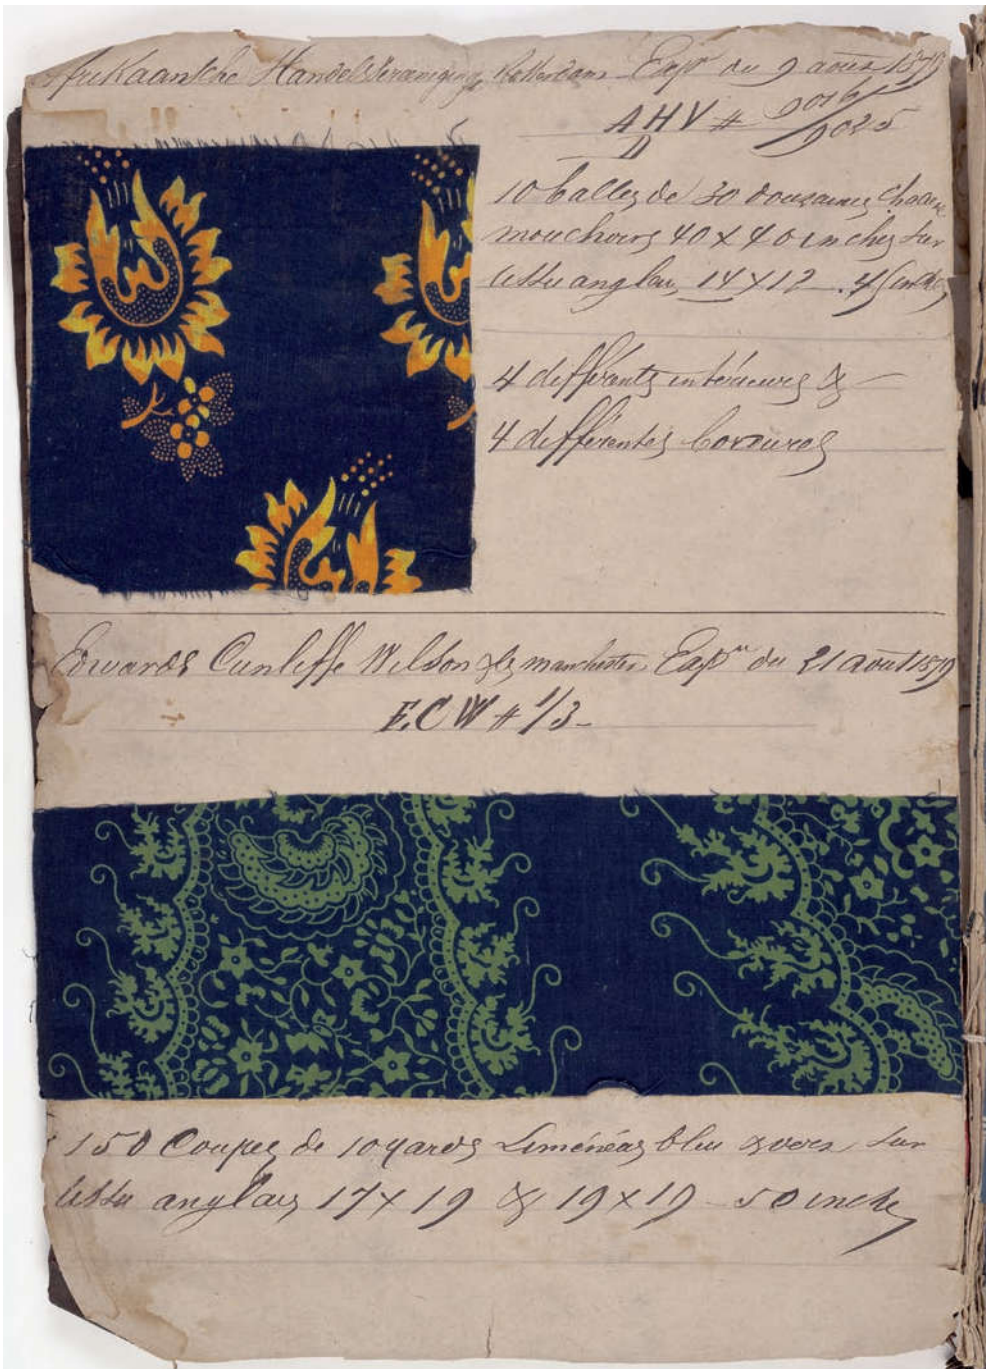 Afrikaansche Handelsvereeniging Rotterdam Exp^on du 9 août 1879
AHV # 9016/9025
D
10 balles de 30 douzaines chacune
mouchoirs 40 x 40 inches sur
tissu anglais 14 x 12
4 différents intérieures &
4 différentes bordures
Edwards Cunliffe Wilson & Co manchester Exp^on du 21 août 1879
ECW # 1/3
150 Coupes de 10 yards Liménéas bleu & vert sur
tissu anglais 17 x 19 & 19 x 19 50 inches